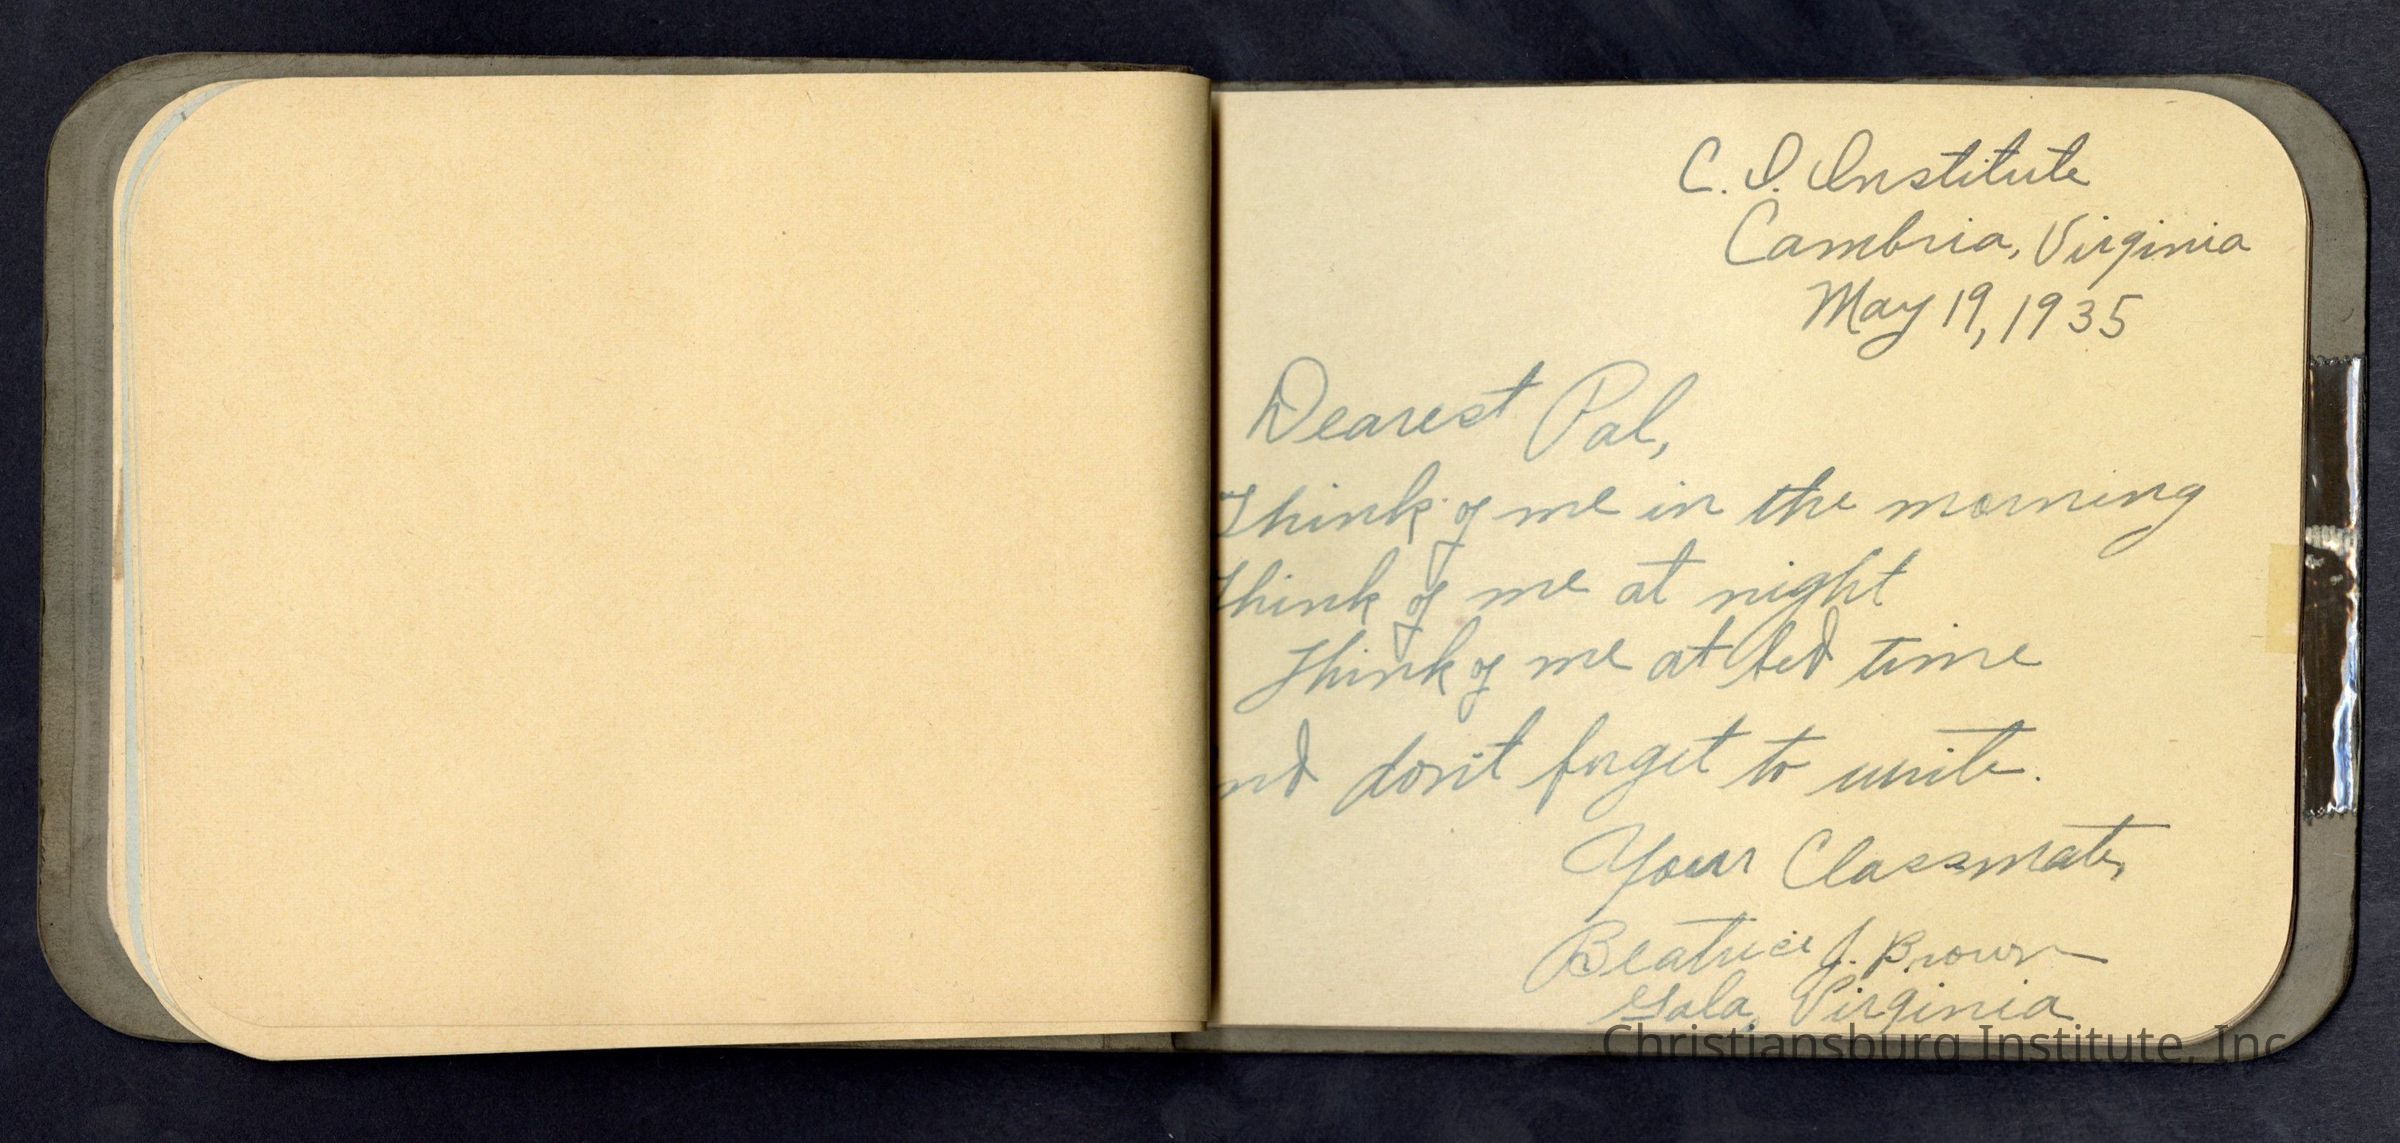 C. I. Institute
Cambria, Virginia
May 19, 1935
Dearest Pal,
Think of me in the morning
Think of me at night
Think of me at bed time
nd don't forget to write.
Your Classmate,
Beatrice J. Brown
Gala, Virginia
Christiansburg Institute, Inc